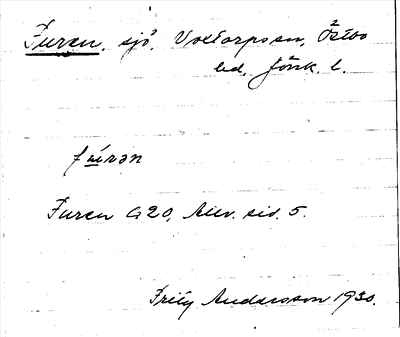 Furen, sjö, Voxtorps sn, Östbo
hd, Jönk. l.
fúrən
Furen G20, Allv. sid. 5.
Fritz Andersson 1930.